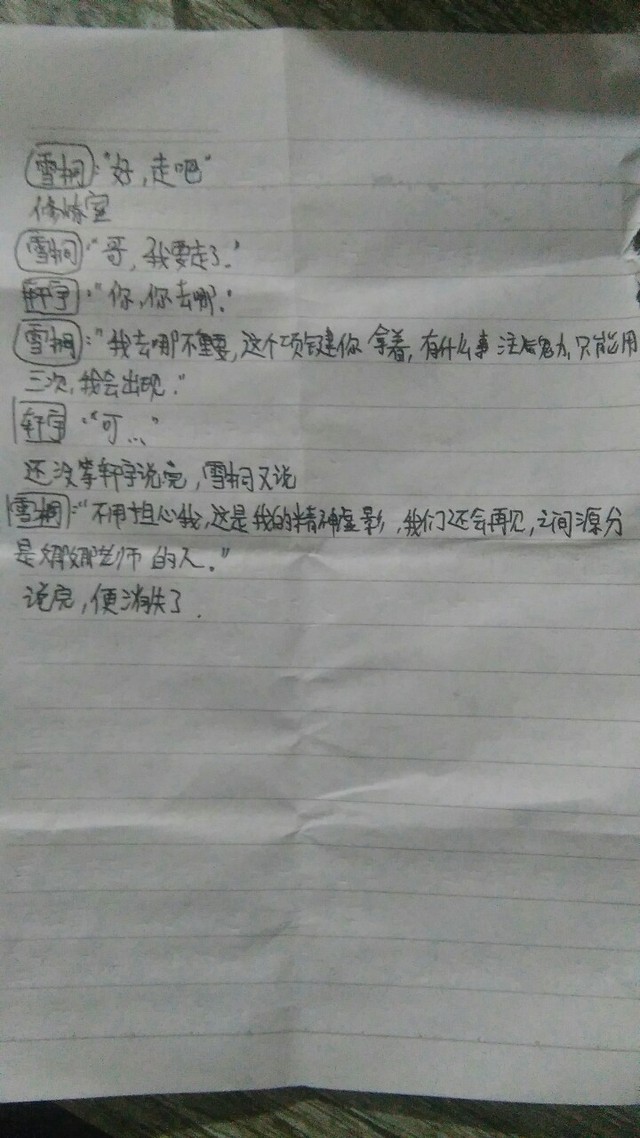 雪桐:"好,走吧"
修炼室
雪桐:"哥,我要走了."
轩宇:"你,你去哪."
雪桐:"我去哪不重要,这个项链你拿着,有什么事注后鬼力,只能用
三次,我会出现."
轩宇:"可..."
还没拿轩宇说完,雪桐又说
雪桐:"不用担心我,这是我的精神虚影,我们还会再见,之间源分
是娜娜老师的人."
说完,便消失了.